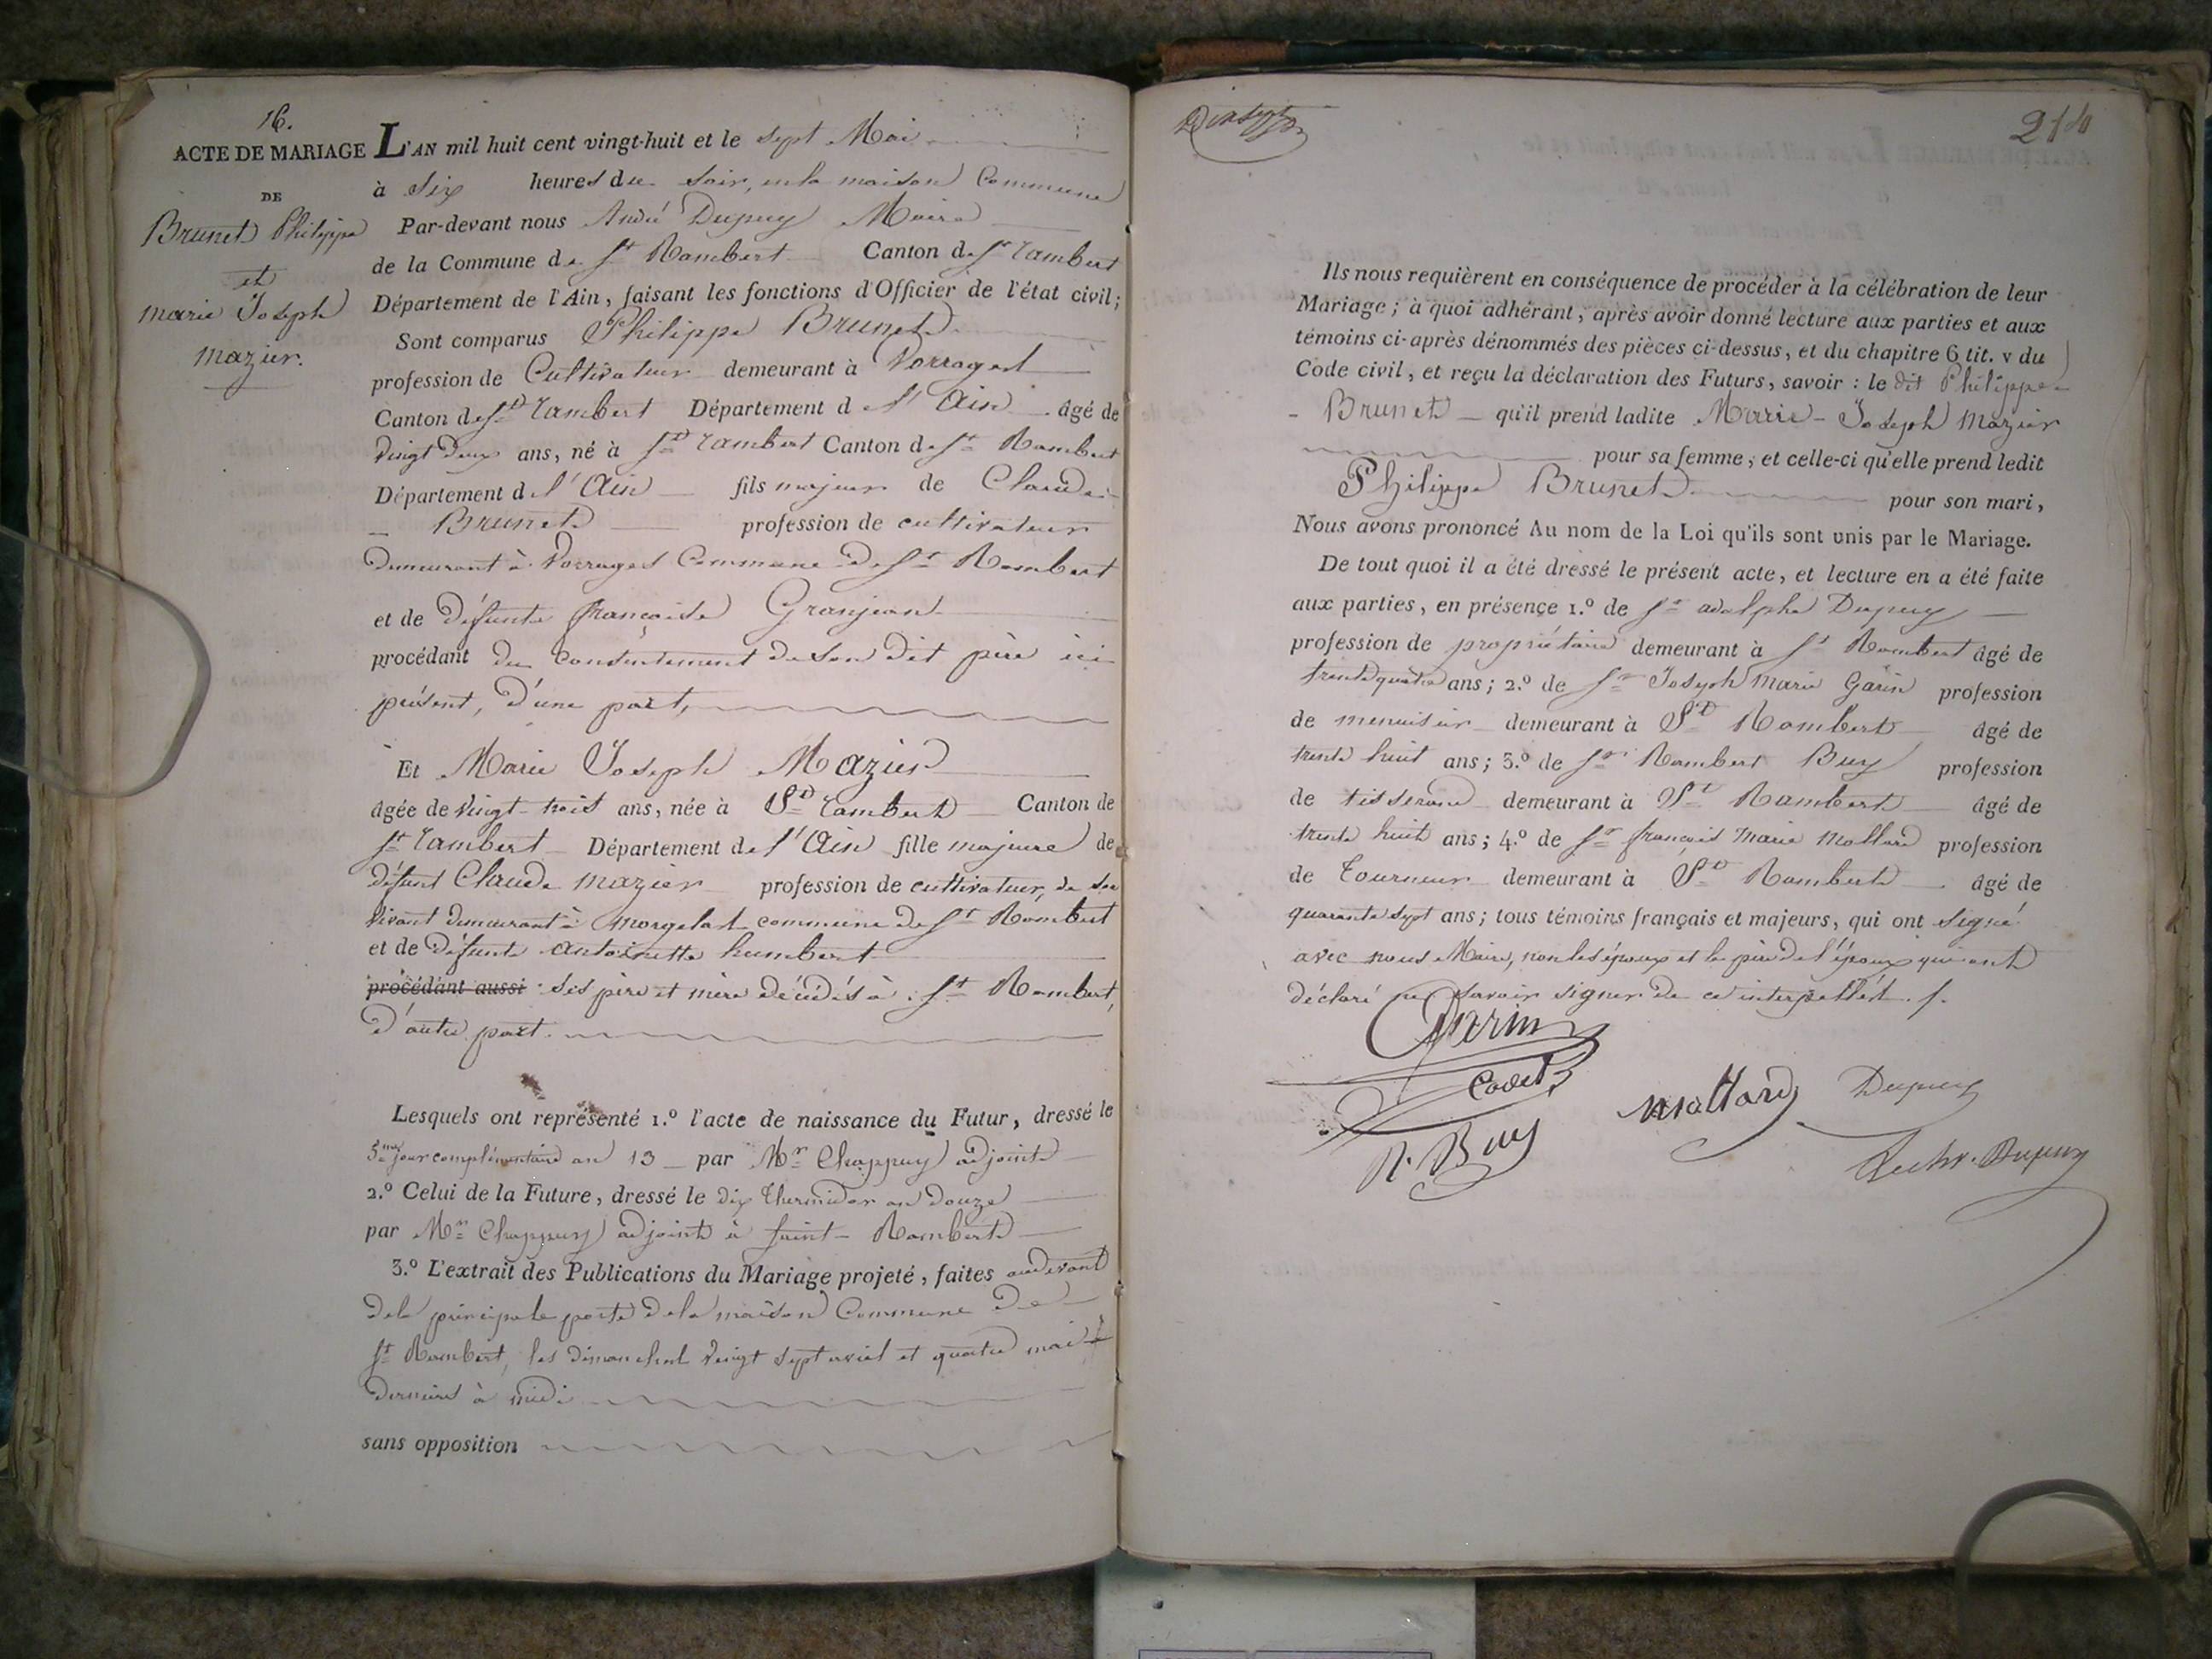 16.
ACTE DE MARIAGE
DE
Brunet Philippe
et
marie Joseph
mazier.
L'AN mil huit cent vingt-huit et le sept Mai
à Six heures du Soir, en la maison Commune
Par-devant nous André Dupuy Maire
de la Commune de St Rambert Canton de St rambert
Département de l'Ain, faisant les fonctions d'Officier de l'état civil;
Sont comparus Philippe Brunet
profession de Cultivateur demeurant à Vorrages
Canton de St rambert Département d l'Ain âgé de
vingt deux ans, né à St rambert Canton de St Rambert
Département d l'Ain fils majeur de Claude
Brunet profession de cultivateur
demeurant à Vorrages Commune de St Rambert
et de défunte françoise Granjean
procédant du consentement de son dit père ici
présent, d'une part,
Et Marie Joseph Mazier
âgée de vingt-trois ans, née à St rambert Canton de
St rambert Département de l'Ain fille majeure de
défunt Claude mazier profession de cultivateur, de son
vivant demeurant à morgelas commune de St Rambert
et de défunte antoinette humbert
procédant aussi ses père et mère décédés à St Rambert,
d'autre part.
Lesquels ont représenté 1.º l'acte de naissance du Futur, dressé le
5me jour complémentaire an 13 par Mr Chappuy adjoint
2.º Celui de la Future, dressé le dix thermidor an douze
par Mr Chappuy adjoint à Saint-Rambert
3.º L'extrait des Publications du Mariage projeté, faites audevant
de la principale porte de la maison Commune de
St Rambert, les dimanches vingt sept avril et quatre mai
derniers à midi
sans opposition
Dix sept
214
Ils nous requièrent en conséquence de procéder à la célébration de leur
Mariage; à quoi adhérant, après avoir donné lecture aux parties et aux
témoins ci-après dénommés des pièces ci-dessus, et du chapitre 6 tit. v du
Code civil, et reçu la déclaration des Futurs, savoir : le dit Philippe
Brunet qu'il prend ladite Marie-Joseph Mazier
pour sa femme, et celle-ci qu'elle prend ledit
Philippe Brunet pour son mari,
Nous avons prononcé Au nom de la Loi qu'ils sont unis par le Mariage.
De tout quoi il a été dressé le présent acte, et lecture en a été faite
aux parties, en présence 1.º de Sr adolphe Dupuy
profession de propriétaire demeurant à St Rambert âgé de
trente quatre ans; 2.º de Sr Joseph Marie Garin profession
de menuisier demeurant à St Rambert âgé de
trente huit ans; 3.º de Sr Rambert Buy profession
de tisserand demeurant à St Rambert âgé de
trente huit ans; 4.º de Sr françois Marie Mollard profession
de Tourneur demeurant à St Rambert âgé de
quarante sept ans; tous témoins français et majeurs, qui ont signé
avec nous Maire, non les époux et le père de l'époux qui ont
déclaré ne savoir signer de ce interpellés.
Garin
Cadet
mollard
Dupuy
R. Buy
Dupuy